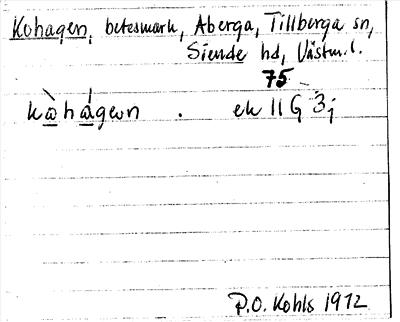 Kohagen, betesmark, Aberga, Tillberga sn,
Siende hd, Västm. l.
75
ek 11 G 3j
P.O. Kohls 1972